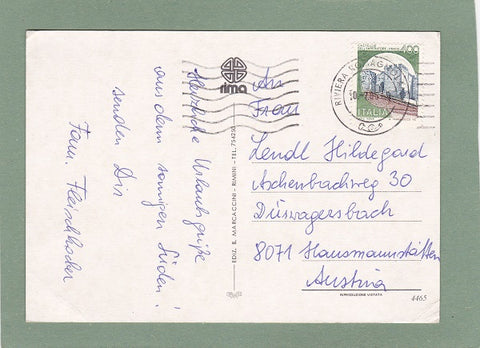 rima
Herzliche Urlaubsgrüße
aus dem sonnigen Süden!
senden Dir
Fam. Fleischhacker
EDIZ. E. MARCACCINI - RIMINI - TEL.
An
Frau
Lendl Hildegard
Aschenbachweg 30
Düswagersbach
8071 Hausmannstätten
Austria
400
ITALIA
RIVIERA
RIPRODUZIONE VIETATA
4465